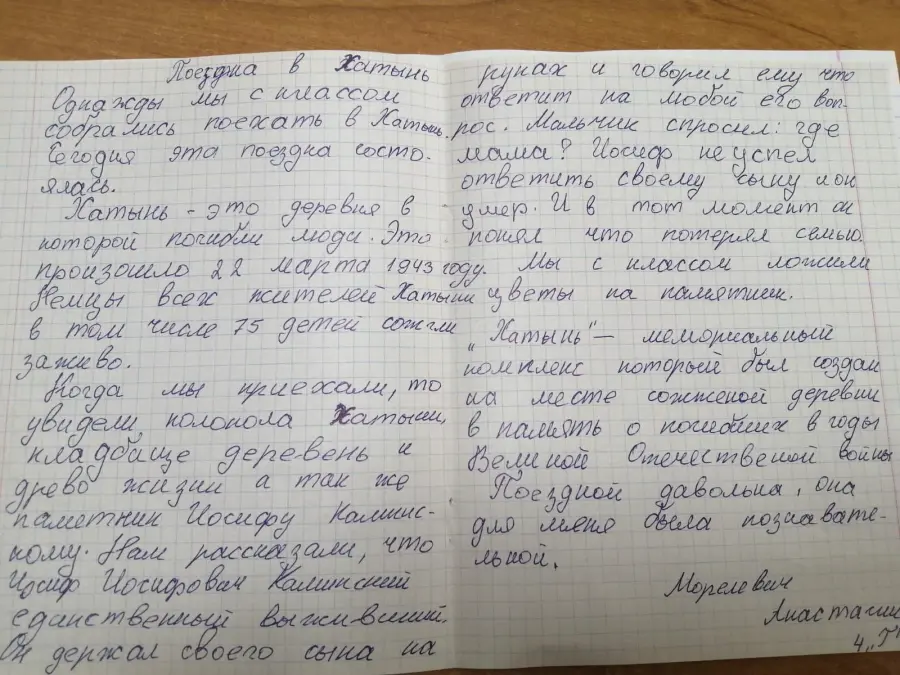 Поездка в Хатынь
Однажды мы с классом
собрались поехать в Хатынь.
Сегодня эта поездка состо-
ялась.
Хатынь - это деревня в
которой погибли люди. Это
произошло 22 марта 1943 году.
Немцы всех жителей Хатыни
в том числе 75 детей сожгли
заживо.
Когда мы приехали, то
увидели колокола Хатыни,
кладбище деревень и
древо жизни а так же
паметник Иосифу Камин-
кому. Нам рассказали, что
Иосиф Иосифович Каминский
единственный выживший.
Он держал своего сына на
руках и говорил ему что
ответит на любой его воп-
рос. Мальчик спросил: где
мама? Иосиф не успел
ответить своему сыну и он
умер. И в тот момент он
понял что потерял семью.
Мы с классом ложили
цветы на памятник.
„Хатынь" — мемориальный
комплекс который был создан
на месте сожженой деревни
в память о погибших в годы
Великой Отечественой войны
Поездкой давольна, она
для меня была познавате-
льной.
Морелевич
Анастасии
4 „Г"